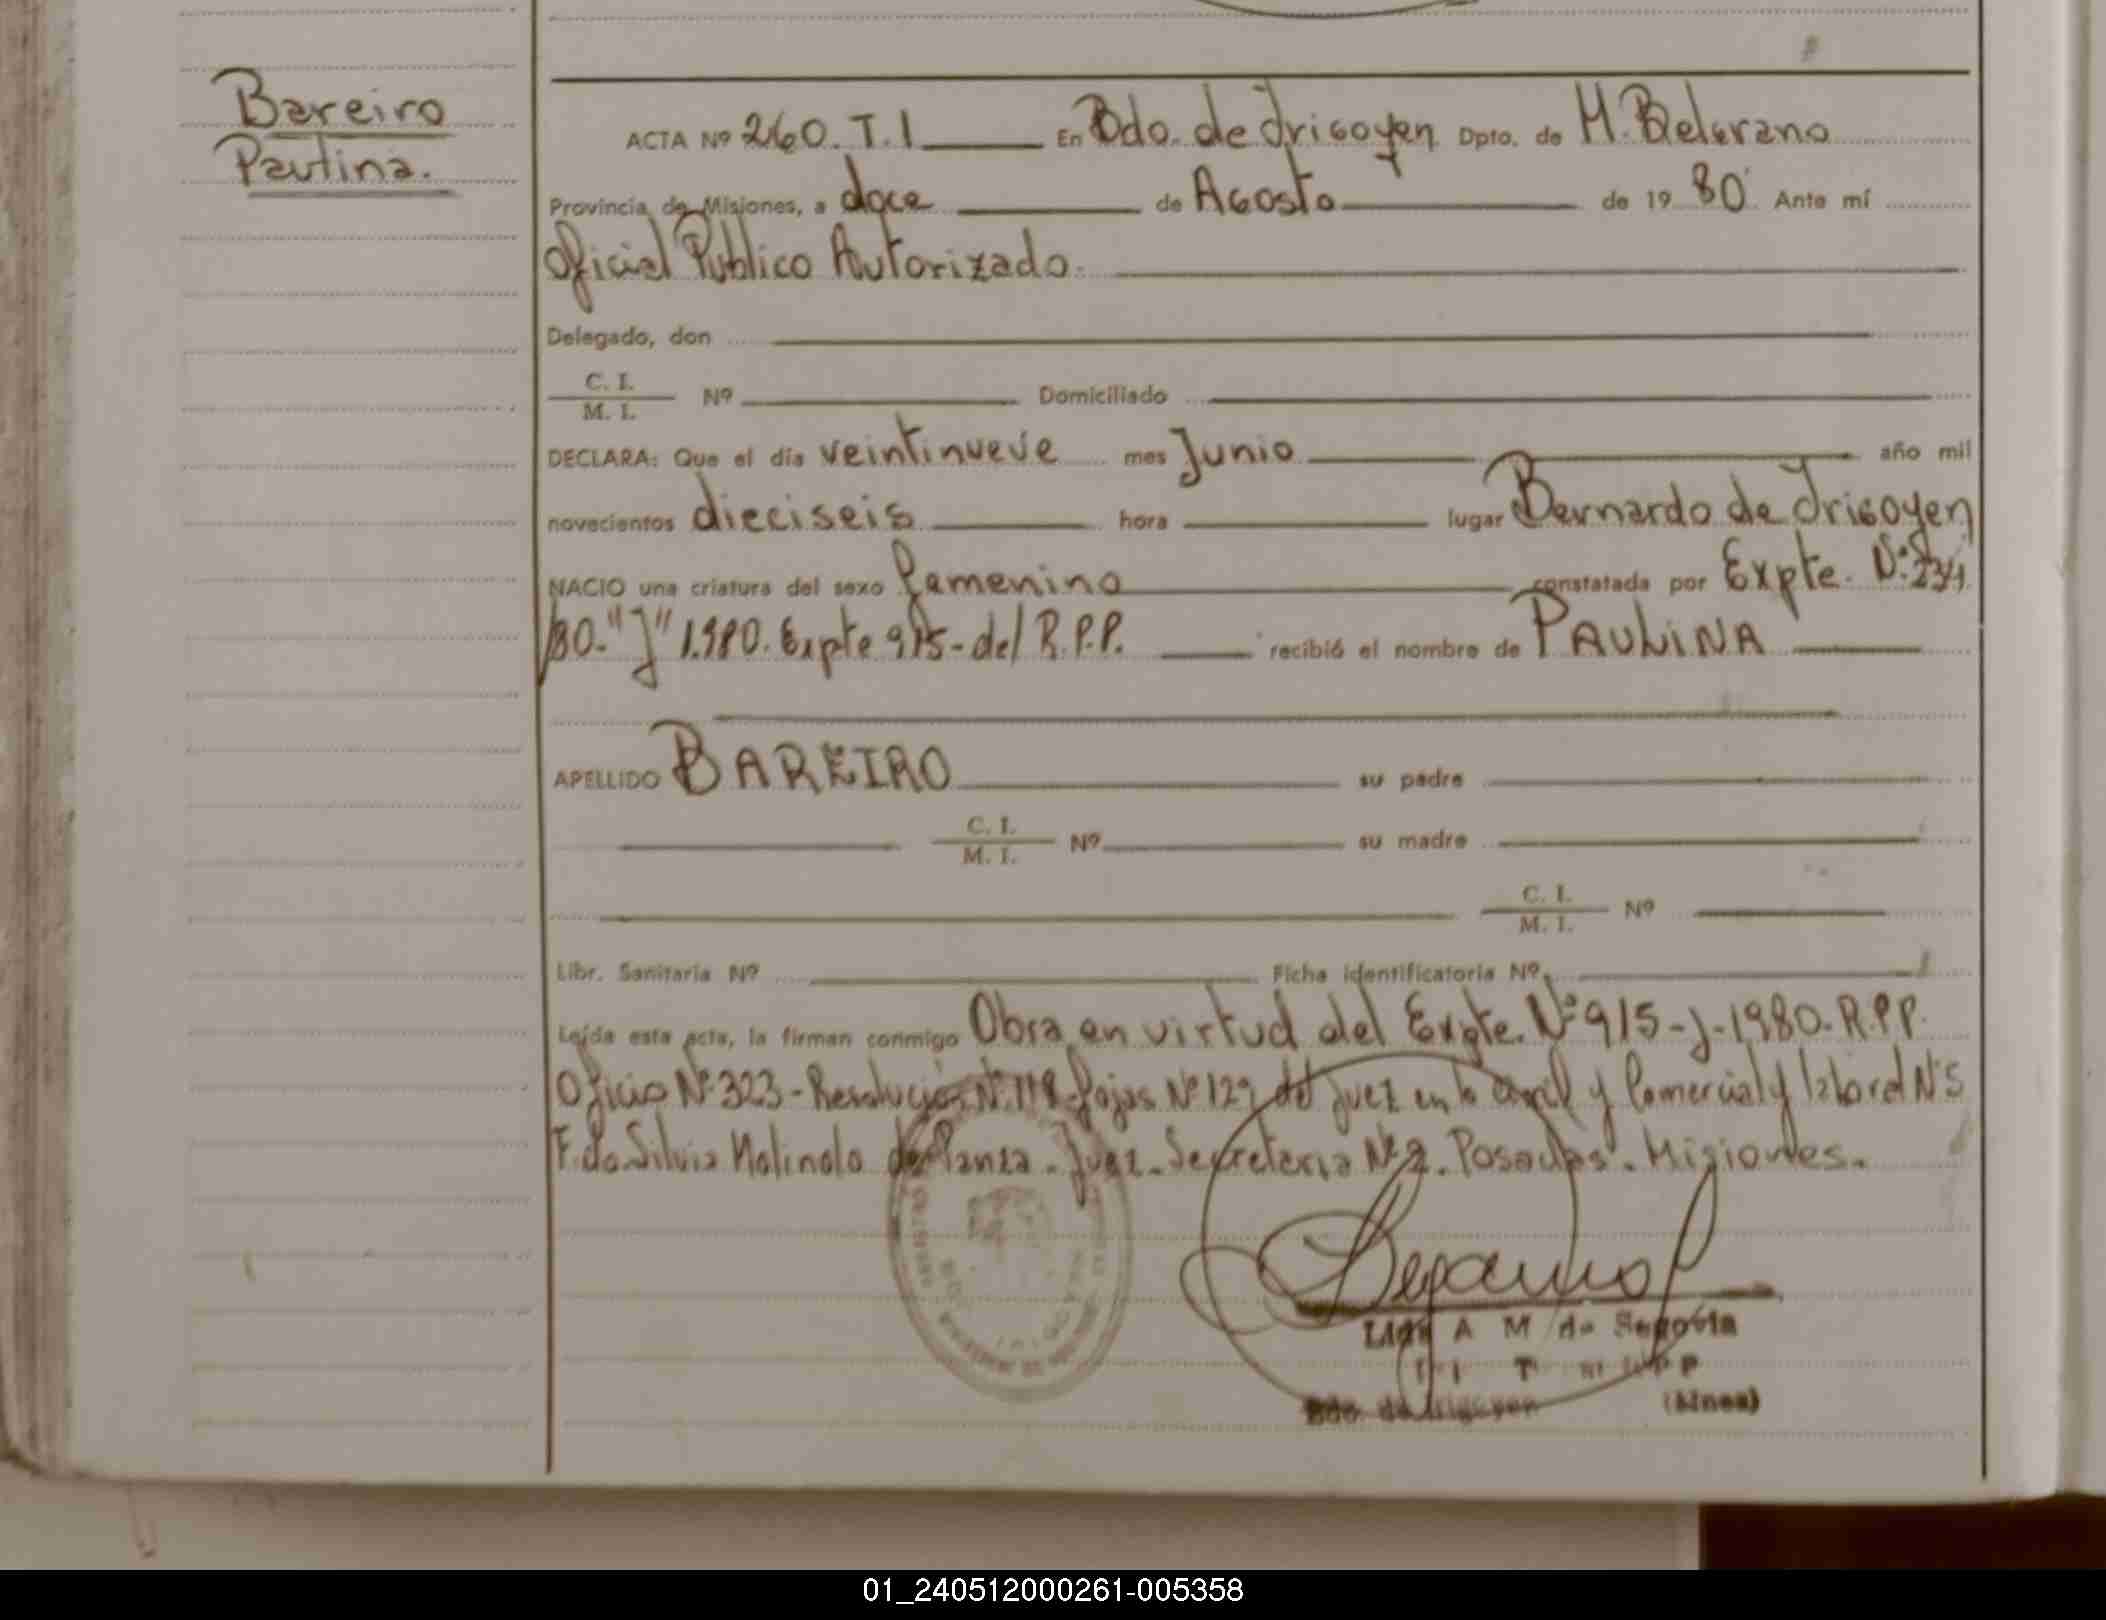 Bareiro
Paulina.
ACTA Nº 260. T. I En Bdo. de Irigoyen Dpto. de M. Belgrano
Provincia de Misiones, a doce de Agosto de 19 80 Ante mí
Oficial Publico Autorizado.
Delegado, don
C. I.
M. I. Nº Domiciliado
DECLARA: Que el día veintinueve mes Junio año mil
novecientos dieciseis hora lugar Bernardo de Irigoyen
NACIO una criatura del sexo femenino constatada por Expte. Nº
/80-"J" 1.980. Expte 915-del R.P.P. recibió el nombre de PAULINA
APELLIDO BAREIRO su padre
C. I.
M. I. Nº su madre
C. I.
M. I. Nº
Libr. Sanitaria Nº Ficha identificatoria Nº
Leída esta acta, la firman conmigo Obra en virtud del Expte. Nº 915-J-1980. R.P.P.
Oficio Nº 323-Resolución Nº 118-fojas Nº del Juez en lo Civil y Comercial y laboral Nº 5
F.do. Silvia de Juez-Secretaria Nº 2. Posadas. Misiones.
A M de Segovia
Bdo. de Irigoyen
01_240512000261-005358